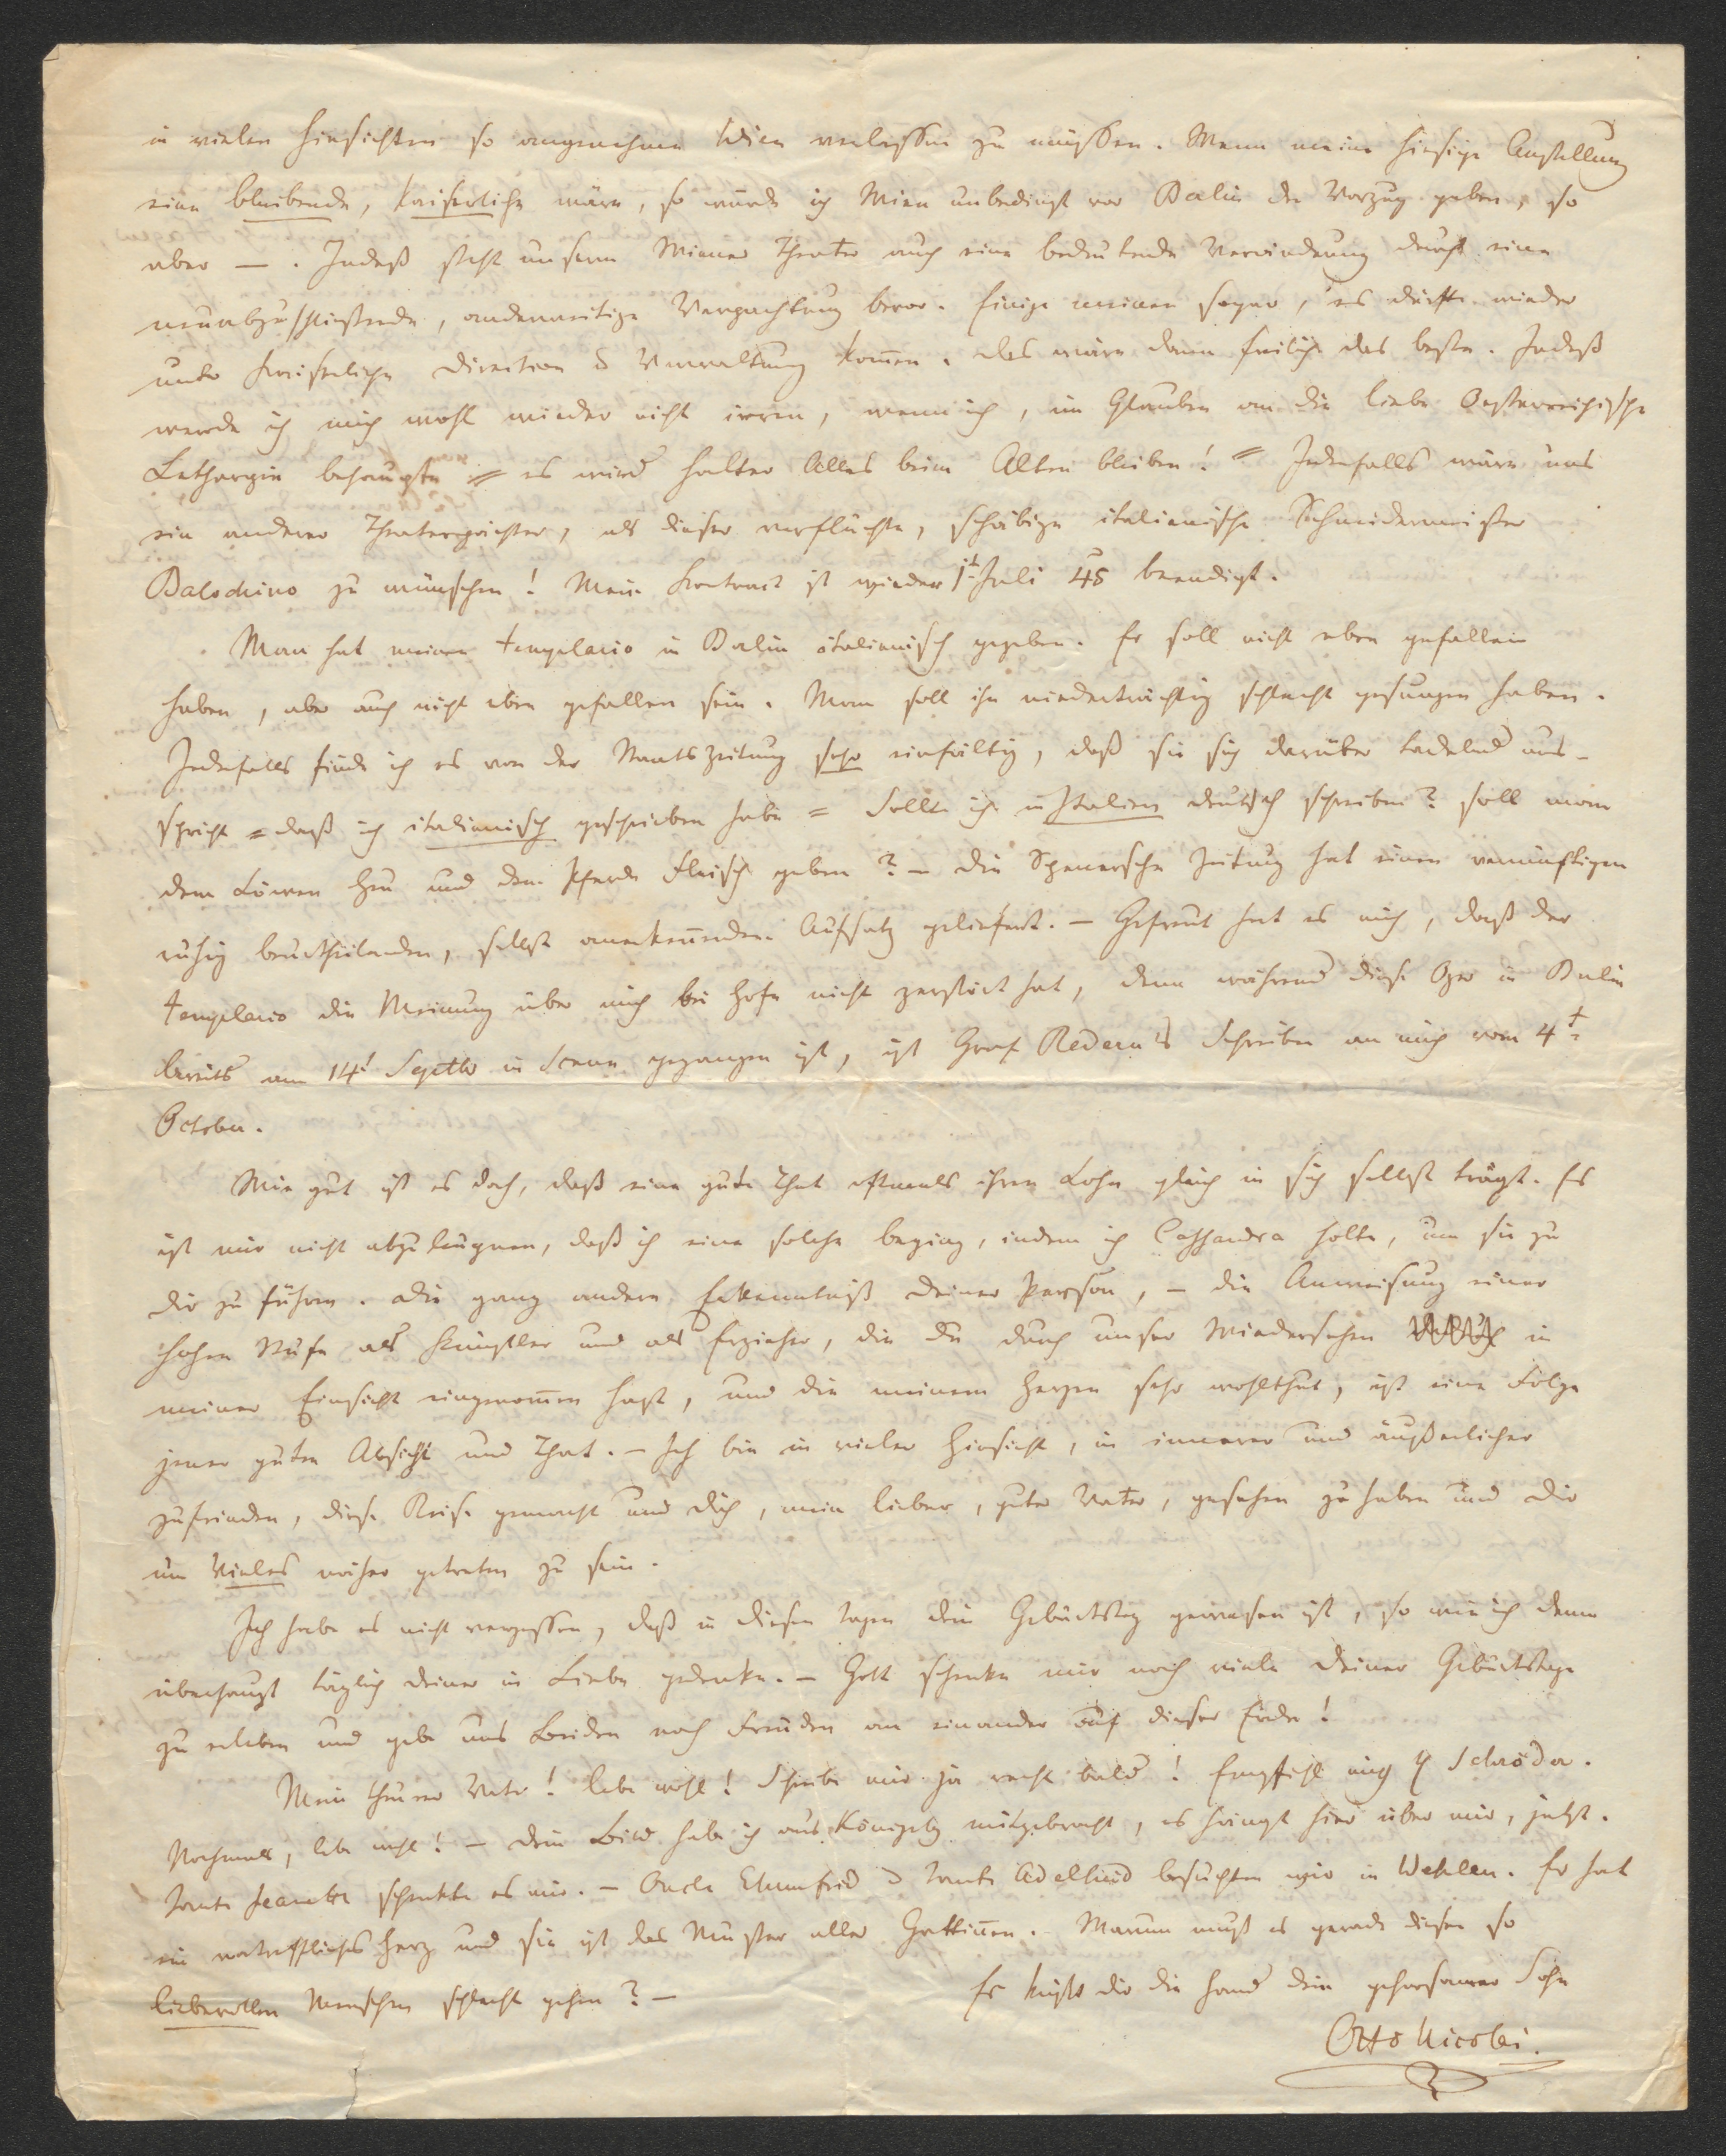 in vielen Hinsichten so angenehme Wien verlassen zu müssen. Wenn meine hiesige Anstellung
eine bleibende, kaiserliche wäre, so würde ich Wien unbedingt vor Berlin den Vorzug geben, so
aber — . Indeß steht unserm Wiener Theater auch eine bedeutende Veränderung durch eine
neuabzuschließende, anderweitige Verpachtung bevor. Einige meinen sogar, es dürfte wieder
unter kaiserliche Direction & Verwaltung kom̅en. Das wäre dann freilich das beste. Indeß
werde ich mich wohl wieder nicht irren, wenn ich, im Glauben an die liebe Oesterreichische
Lethargie behaupte = es wird halter Alles beim Alten bleiben! = Jedenfalls wäre uns
ein anderer Theaterpächter, als dieser verfluchte, schäbige italienische Schneidermeister
Balochino zu wünschen! Mein Kontract ist wieder 1t Juli 45 beendigt.
Man hat meinen templario in Berlin italienisch gegeben. Er soll nicht eben gefallen
haben, aber auch nicht eben gefallen sein. Man soll ihn niederträchtig schlecht gesungen haben.
Jedenfalls finde ich es von der Staatszeitung sehr einfältig, daß sie sich darüber tadelnd aus-
spricht = daß ich italienisch geschrieben habe = Sollte ich in Italien deutsch schreiben? soll man
dem Löwen Heu und dem Pferde Fleisch geben? — Die Spenersche Zeitung hat einen vernünftigen
ruhig beurtheilenden, selbst anerkennenden Aufsatz geliefert. — Gefreut hat es mich, daß der
templario die Meinung über mich bei Hofe nicht zerstört hat, denn während diese Oper in Berlin
bereits am 14t Septbr in Scene gegangen ist, ist Graf Redern's Schreiben an mich vom 4t
October.
Wie gut ist es doch, daß eine gute That oftmals ihren Lohn gleich in sich selbst trägt. Es
ist mir nicht abzuleugnen, daß ich eine solche beging, indem ich Cassandra holte, um sie zu
Dir zu führen. Die ganz andere Erkenntniß Deiner Person, — die Anweisung einer
hohen Stufe als Künstler und als Erzieher, die Du durch unser Wiedersehen in
meiner Einsicht eingenom̅en hast, und die meinem Herzen sehr wohlthut, ist eine Folge
jener guten Absicht und That. — Ich bin in vieler Hinsicht, in innerer und äußerlicher
zufrieden, diese Reise gemacht und Dich, mein lieber, guter Vater, gesehen zu haben und Dir
um Vieles näher getreten zu sein.
Ich habe es nicht vergessen, daß in diesen Tagen dein Geburtstag gewesen ist, so wie ich denn
überhaupt täglich deiner in Liebe gedenke. — Gott schenke mir noch viele Deiner Geburtstage
zu erleben und gebe uns Beiden noch Freuden an einander auf dieser Erde!
Mein theurer Vater! lebe wohl! Schreibe mir ja recht bald! Empfiehl mich H Schröder.
Nochmals, lebe wohl! — Dein Bild habe ich aus Königsbg mitgebracht, es hängt hier über mir, jetzt.
Tante Jeanette schenkte es mir. — Onkel & Tante Adelheid besuchten wir in Wehlau. Er hat
ein vortreffliches Herz und sie ist das Muster aller Gattin̅en. Warum muß es gerade diesen so
liebevollen Menschen schlecht gehen? —
Es küßt dir die Hand dein gehorsamer Sohn
Otto Nicolai.